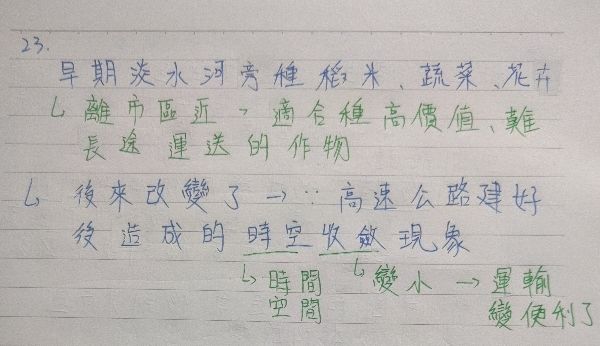 23.
早期淡水河旁種稻米、蔬菜、花卉
↳ 離市區近，適合種高價值、難
長途運送的作物
↳ 後來改變了 → ∵ 高速公路建好
後造成的時空收斂現象
↳ 時間 ↳ 變小 → 運輸
空間 變便利了